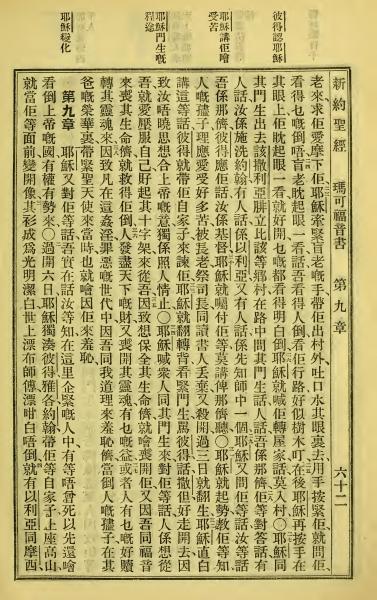 彼得認耶穌
耶穌講佢噲受苦
耶穌門生嘅程途
耶穌變化
新約聖經 瑪可福音書 第九章 六十二
老來求佢愛摩下佢耶穌牽緊盲老嘅手帶佢出村外吐口水其眼裏去用手按緊佢就問佢
看得也嘅倒唔盲老眈起眼一看話吾看得人倒看佢行路好似樹木叮在後耶穌再按手在
其眼上佢眈起眼一看就好開乜嘅都看得明白倒耶穌就喊佢轉屋家話莫入村〇耶穌同
其門生出去該撒利亞腓立比該等鄉村在路中間其門生話人話吾係那儕佢等對答話有
人話汝係施洗約翰有人話係以利亞又有人話係先知師中一個耶穌又問佢等話汝等話
吾係那儕彼得應佢話汝係基督耶穌就囑付佢等莫講俾那儕聽〇耶穌就起勢教佢等知
人嘅孻子理應愛受好多苦被長老祭司長同讀書人丟棄又殺開過三日就翻生耶穌直白
講這等話彼得就帶佢自家子來諫佢耶穌就翻轉背看緊門生罵彼得話撒但好走開去因
致汝唔曉思想合上帝嘅意獨係照人情止〇耶穌喊衆人同其門生來對佢等話人係想從
吾就愛壓服自己孭起其十字架來從吾因致想保全其生命儕就噲喪開佢又因吾同福音
來喪其生命儕就救得佢倒人發盡天下嘅財又喪開其靈魂有乜嘅益或者人有乜嘅好贖
轉其靈魂來因致凡在這姦淫罪惡嘅世代中因吾同我道理來羞恥儕當倒人嘅孻子在其
爸嘅榮華裏帶緊聖天使來當時也就噲因佢來羞恥
第九章 耶穌又對佢等話吾實在話汝等知在這里企緊嘅人中有等唔曾死以先還噲
看倒上帝嘅國有權有勢來〇過開六日耶穌獨湊彼得雅各約翰帶佢等自家子上座高山
就當佢等面前變開像其衫成爲光明潔白世上漂布師傅漂咁白唔倒就有以利亞同摩西